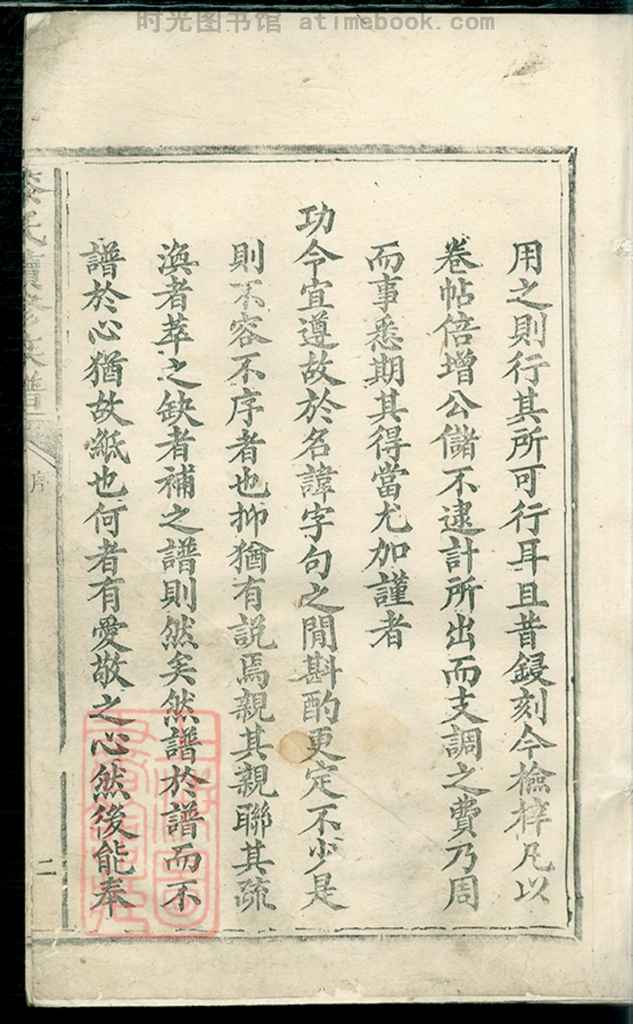 时光图书馆 atimebook.com
用之則行其所可行耳且昔鋟刻今檢梓凡以
卷帖倍增公儲不逮計所出而支調之費乃周
而事悉期其得當尤加謹者
功令宜遵故於名諱字句之閒斟酌更定不少是
則不容不序者也抑猶有説焉親其親聯其疏
渙者萃之缺者補之譜則然矣然譜於譜而不
譜於心猶故紙也何者有愛敬之心然後能奉
氏續修族譜
序
二